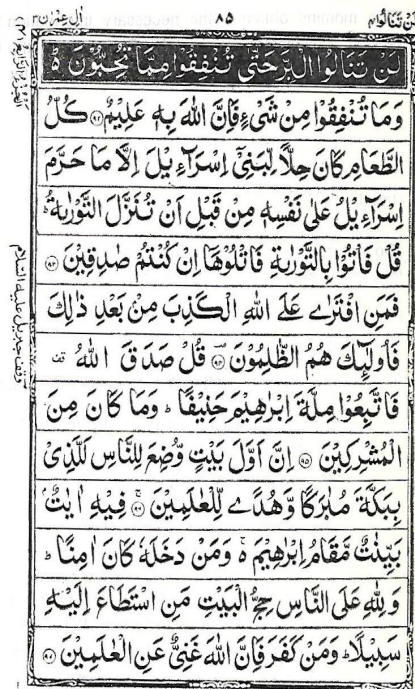 لن تنالوا ۴ ۸۵ اٰل عمرٰن ۳
لَنْ تَنَالُوا الْبِرَّ حَتّٰى تُنْفِقُوْا مِمَّا تُحِبُّوْنَ ۵
وَمَا تُنْفِقُوْا مِنْ شَىْءٍ فَاِنَّ اللّٰهَ بِهٖ عَلِيْمٌ ۹۲ كُلُّ
الطَّعَامِ كَانَ حِلًّا لِّبَنِىْٓ اِسْرَآءِيْلَ اِلَّا مَا حَرَّمَ
اِسْرَآءِيْلُ عَلٰى نَفْسِهٖ مِنْ قَبْلِ اَنْ تُنَزَّلَ التَّوْرٰىةُ ؕ
قُلْ فَاْتُوْا بِالتَّوْرٰىةِ فَاتْلُوْهَآ اِنْ كُنْتُمْ صٰدِقِيْنَ ۹۳
فَمَنِ افْتَرٰى عَلَى اللّٰهِ الْكَذِبَ مِنْۢ بَعْدِ ذٰلِكَ
فَاُولٰٓئِكَ هُمُ الظّٰلِمُوْنَ ۹۴ قُلْ صَدَقَ اللّٰهُ قف
فَاتَّبِعُوْا مِلَّةَ اِبْرٰهِيْمَ حَنِيْفًا ؕ وَمَا كَانَ مِنَ
الْمُشْرِكِيْنَ ۹۵ اِنَّ اَوَّلَ بَيْتٍ وُّضِعَ لِلنَّاسِ لَلَّذِىْ
بِبَكَّةَ مُبٰرَكًا وَّهُدًى لِّلْعٰلَمِيْنَ ۹۶ فِيْهِ اٰيٰتٌۢ
بَيِّنٰتٌ مَّقَامُ اِبْرٰهِيْمَ ۵ وَمَنْ دَخَلَهٗ كَانَ اٰمِنًا ؕ
وَلِلّٰهِ عَلَى النَّاسِ حِجُّ الْبَيْتِ مَنِ اسْتَطَاعَ اِلَيْهِ
سَبِيْلًا ؕ وَمَنْ كَفَرَ فَاِنَّ اللّٰهَ غَنِىٌّ عَنِ الْعٰلَمِيْنَ ۹۷
وقف جبريل عليه السلام